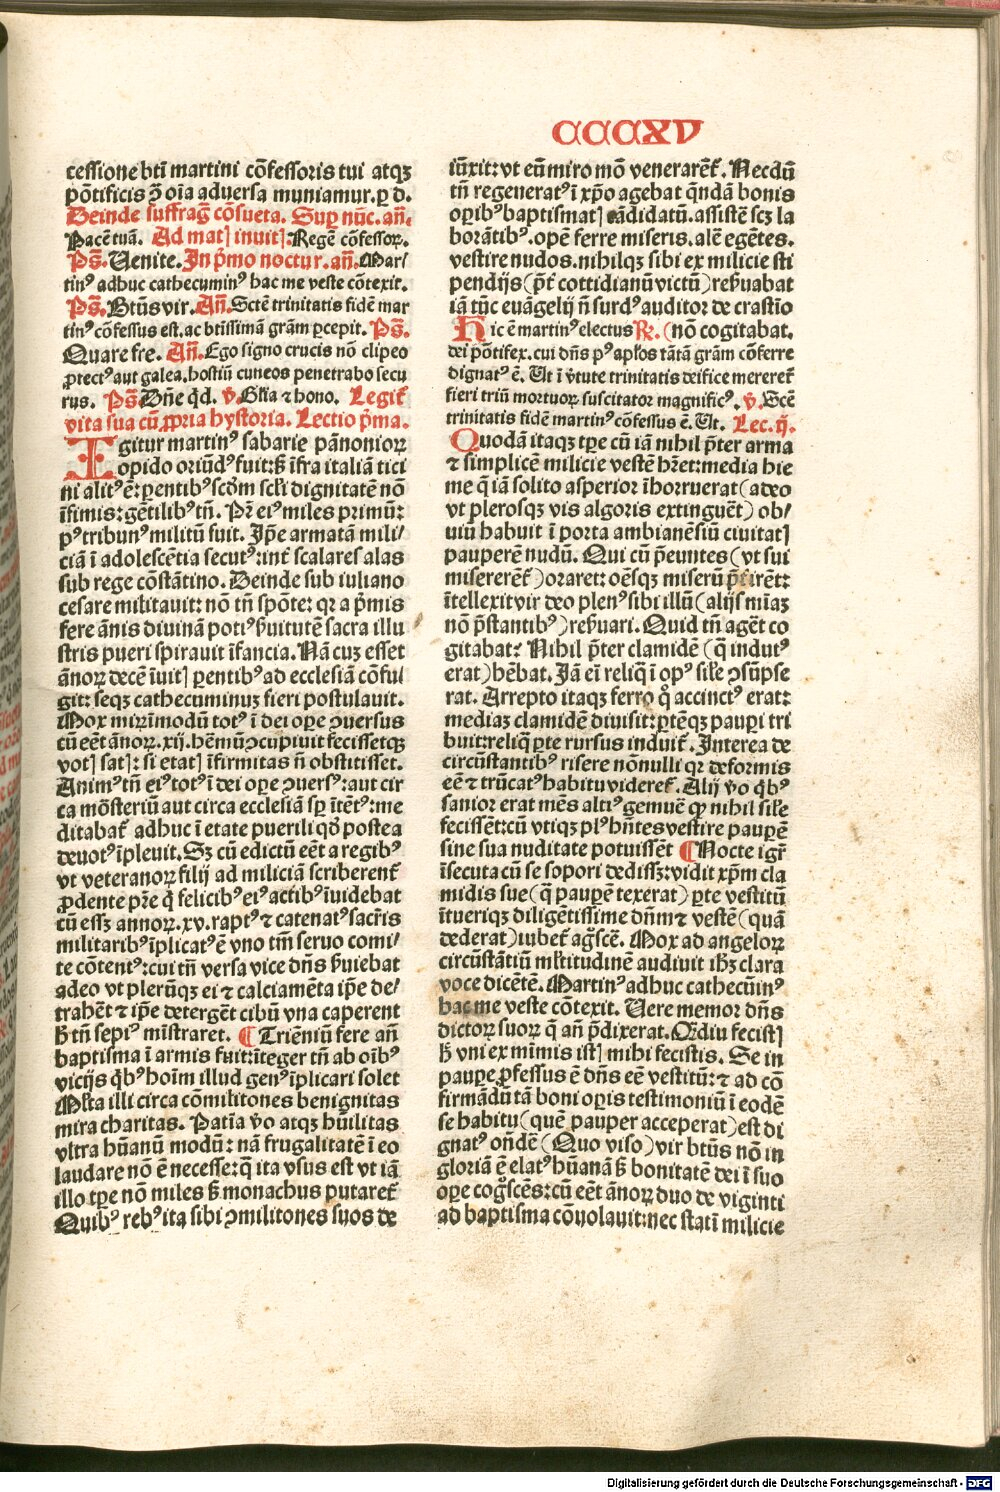 CCCXV
cessione bti martini cōfessoris tui atqꝫ
pōtificis ꝯ oīa aduersa muniamur. ꝑ d.
Deinde suffraḡ cōsueta. Sup nūc. an̄.
Pacē tuā. Ad matꝭ inuitꝭ. Regē cōfessoꝝ.
Ps̄. Uenite. In p̄mo noctur. an̄. Mar⸗
tinꝰ adhuc cathecuminꝰ hac me veste cōtexit.
Ps̄. Btūs vir. An̄. Sctē trinitatis fidē mar
tinꝰ cōfessus est. ac btissimā grām ꝑcepit. Ps̄.
Quare fre. An̄. Ego signo crucis nō clipeo
ꝓtectꝰ aut galea. hostiū cuneos penetrabo secu
rus. Ps̄ Dn̄e q̄d. v̄. Gl̄ia ⁊ hono. Legit᷑
vita sua cū ꝓpria hystoria. Lectio p̄ma.
Igitur martinꝰ sabarie pānonioꝝ
opido oriūdꝰ fuit: s̄ īfra italiā tici
ni alitꝰ ē: ꝑentibꝰ scd̄m scl̄i dignitatē nō
īfimis: gētilibꝰ tn̄. Pr̄ eiꝰ miles primū:
pꝰ tribunꝰ militū fuit. Ip̄e armatā mili⸗
ciā ī adolescētia secutꝰ: int᷑ scalares alas
sub rege cōstātino. Deinde sub iuliano
cesare militauit: nō tn̄ spōte: qꝛ a p̄mis
fere ānis diuinā potiꝰ ẜuitutē sacra illu
stris pueri spirauit īfancia. Nā cuꝫ esset
ānoꝝ decē īuitꝭ ꝑentibꝰ ad ecclesiā cōfu⸗
git: seqꝫ cathecuminuꝫ fieri postulauit.
Mox mirīmodū totꝰ ī dei oꝑe ꝯuersus
cū eēt ānoꝝ. xij. hēmū ꝯcupiuit fecissetqꝫ
votꝭ satꝭ: si etatꝭ īfirmitas n̄ obstitisset.
Animꝰ tn̄ eiꝰ totꝰ ī dei oꝑe ꝯuersꝰ: aut cir
ca mōsteriū aut circa ecclesiā sꝑ ītētꝰ: me
ditabat᷑ adhuc ī etate puerili qd̄ postea
deuotꝰ īpleuit. Sꝫ cū edictū eēt a regibꝰ
vt veteranoꝝ filij ad miliciā scriberent᷑
ꝓdente pr̄e q̄ felicibꝰ eiꝰ actibꝰ īuidebat
cū essꝫ annoꝝ. xv. raptꝰ ⁊ catenatꝰ sacr̄is
militaribꝰ īplicatꝰ ē vno tm̄ seruo comi⸗
te cōtentꝰ: cui tn̄ versa vice dn̄s ẜuiebat
adeo vt plerūqꝫ ei ⁊ calciamēta ip̄e de⸗
trahēt ⁊ ip̄e detergēt cibū vna caperent
h̄ tn̄ sepiꝰ mīstraret. ¶ Triēniū fere an̄
baptisma ī armis fuit: īteger tn̄ ab oībꝰ
vicijs q̄bꝰ hoīm illud genꝰ īplicari solet
Ml̄ta illi circa cōmilitones benignitas
mira charitas. Patīa v̄o atqꝫ hūilitas
vltra hūanū modū: nā frugalitatē ī eo
laudare nō ē necesse: q̄ ita vsus est vt iā
illo tꝑe nō miles s̄ monachus putaret᷑
Quibꝰ rebꝰ ita sibi ꝯmilitones suos de
iūxit: vt eū miro mō venerarēt᷑. Necdū
tn̄ regeneratꝰ ī xp̄o agebat q̄ndā bonis
oꝑibꝰ baptismatꝭ cādidatū. assistē scꝫ la
borātibꝰ. opē ferre miseris. alē egētes.
vestire nudos. nihilqꝫ sibi ex milicie sti
pendijs (p̄t᷑ cottidianū victū) reẜuabat
iā tūc euāgelij n̄ surdꝰ auditor de crastīo
Hic ē martinꝰ electus ℟. (nō cogitabat.
dei pōtifex. cui dn̄s pꝰ apl̄os tātā grām cōferre
dignatꝰ ē. Ut ī v̄tute trinitatis deifice mereret᷑
fieri triū mortuoꝝ suscitator magnificꝰ. v̄. Scē
trinitatis fidē martinꝰ cōfessus ē. Ut. Lec. ij.
Quodā itaqꝫ tꝑe cū iā nihil p̄ter arma
⁊ simplicē milicie vestē hr̄et: media hie
me q̄ iā solito asperior īhorruerat (adeo
vt plerosqꝫ vis algoris extinguēt) ob⸗
uiū habuit ī porta ambianēsiū ciuitatꝭ
pauperē nudū. Qui cū p̄eūtes (vt sui
misererēt᷑) oraret: oēsqꝫ miserū p̄tirēt:
ītellexit vir deo plenꝰ sibi illū (alijs mīaꝫ
nō p̄stantibꝰ) reẜuari. Quid tn̄ agēt co
gitabat: Nihil p̄ter clamidē (q̄ indutꝰ
erat) hēbat. Jā eī reliq̄ ī opꝰ sil̄e ꝯsūpse
rat. Arrepto itaqꝫ ferro q̊ accinctꝰ erat:
mediaꝫ clamidē diuisit: ꝑtēqꝫ pauꝑi tri
buit: reliq̄ ꝑte rursus induit᷑. Interea de
circūstantibꝰ risere nōnulli qꝛ deformis
eē ⁊ trūcatꝰ habitu videret᷑. Alij v̄o q̄bꝰ
sanior erat mēs altiꝰ gemuē ꝙ nihil sil̄e
fecissēt: cū vtiqꝫ plꝰ hn̄tes vestire pauꝑē
sine sua nuditate potuissēt ¶ Nocte igr̄
īsecuta cū se sopori dedissꝫ: vidit xp̄m cla
midis sue (q̄ pauꝑē texerat) ꝑte vestitū
ītueriqꝫ diligētissime dn̄m ⁊ vestē (quā
dederat) iubet᷑ ag̊scē. Mox ad angeloꝝ
circūstātiū ml̄titudinē audiuit ih̄ꝫ clara
voce dicētē. Martinꝰ adhuc cathecūinꝰ
hac me veste cōtexit. Uere memor dn̄s
dictoꝝ suoꝝ q̄ an̄ p̄dixerat. Qr̄diu fecistꝭ
h̄ vni ex mīmis istꝭ mihi fecistis. Se in
pauꝑe ꝓfessus ē dn̄s eē vestitū: ⁊ ad cō
firmādū tā boni oꝑis testimoniū ī eodē
se habitu (quē pauper acceperat) est di
gnatꝰ on̄dē (Quo viso) vir btūs nō in
gloriā ē elatꝰ hūanā s̄ bonitatē dei ī suo
oꝑe cog̊scēs: cū eēt ānoꝝ duo de viginti
ad baptisma cōuolauit: nec statī milicie
Digitalisierung gefördert durch die Deutsche Forschungsgemeinschaft - DFG